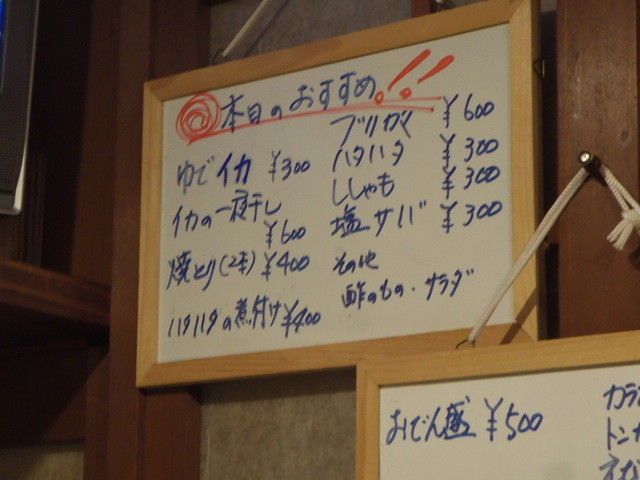 本日のおすすめ!!
ゆでイカ ¥300
イカの一夜干し
¥600
焼とり(2本) ¥400
ハタハタの煮付け ¥400
ブリカマ ¥600
ハタハタ ¥300
ししゃも ¥300
塩サバ ¥300
その他
酢のもの・サラダ
おでん盛 ¥500
カラ
トン